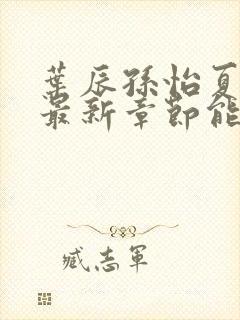 葉辰孫怡夏
最新章節能
臧志軍